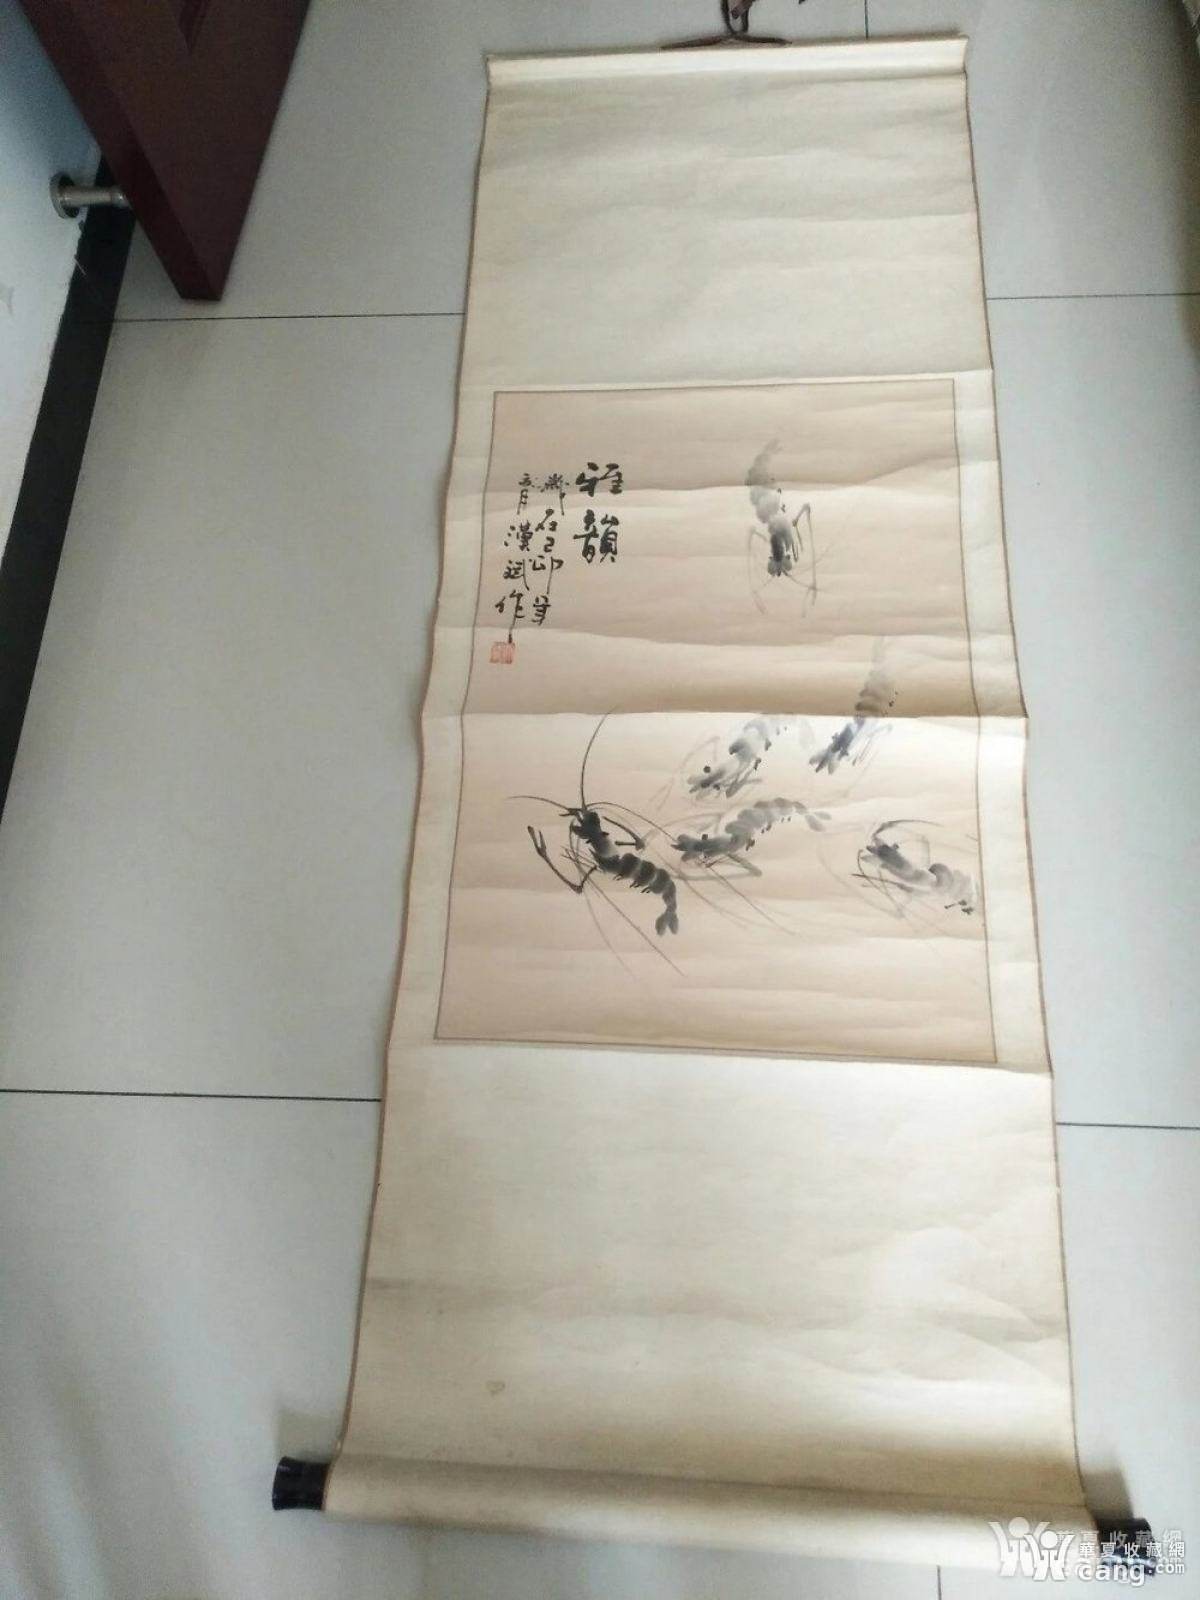 雅韻
歲在己卯年
六月漢斌作
華夏收藏網
cang.com